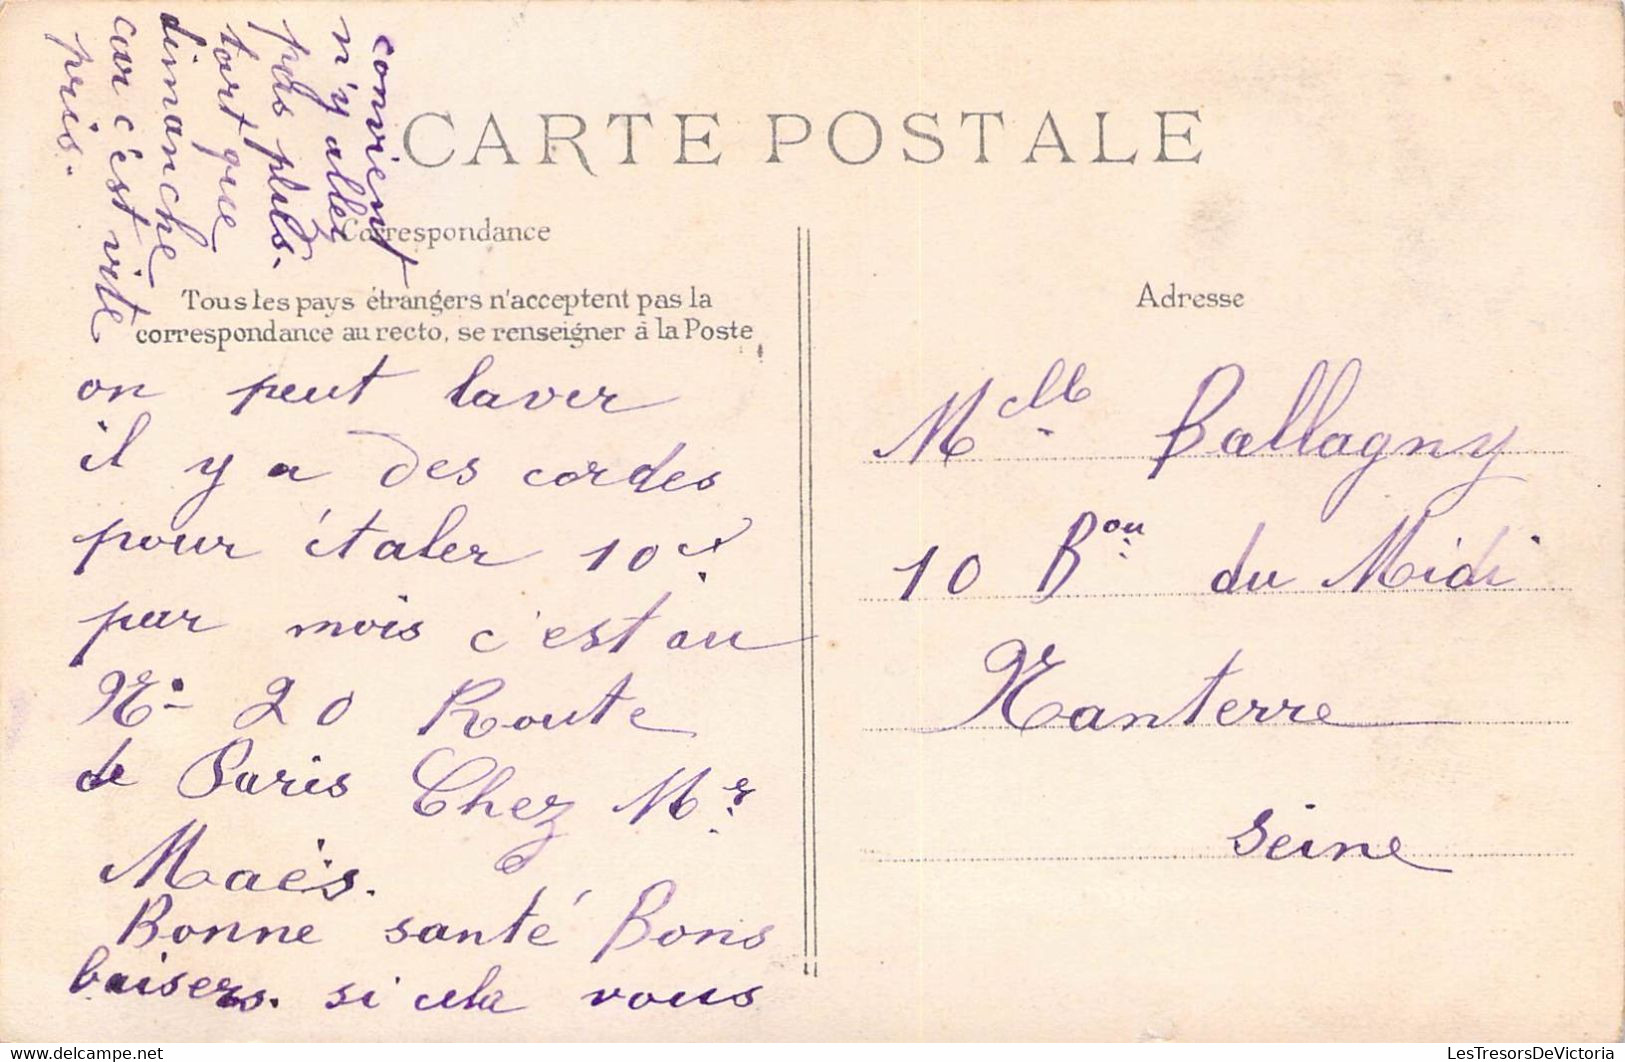 CARTE POSTALE
Correspondance
Tous les pays étrangers n'acceptent pas la
correspondance au recto, se renseigner à la Poste
on peut laver
il y a des cordes
pour étaler 10 
par mois c'est au
N° 20 Route
de Paris Chez Mr
Maës.
Bonne santé Bons
baisers. si cela vous
convient
n'y allez
pas plus
tard que
dimanche
car c'est vite
pris.
Adresse
Melle Ballagny
10 Bou du Midi
Nanterre
Seine
Delcampe.net
LesTresorsDeVictoria